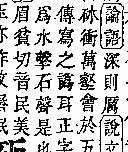 論語深則厲說文
砅衝萬壑會於五
傳寫之譌耳正字
爲水擊石聲是也
眉貧切音民美